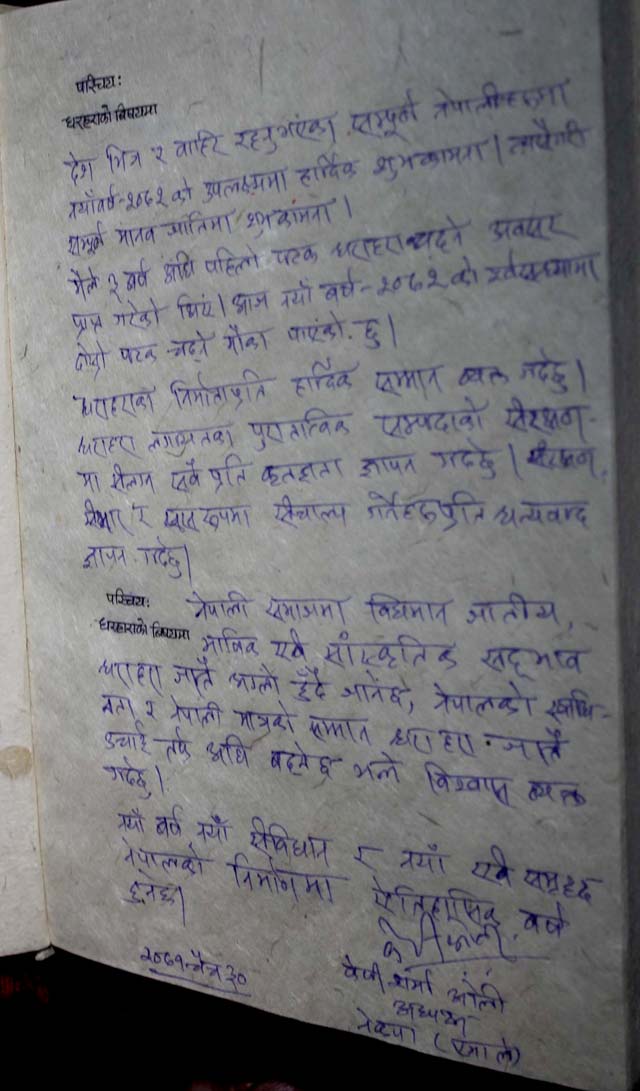 परिचय:
धरहराको विषयमा
देश भित्र र बाहिर रहनुभएका सम्पूर्ण नेपालीहरूमा
नयाँवर्ष-२०७२ को उपलक्ष्यमा हार्दिक शुभकामना। त्यसैगरी
सम्पूर्ण मानव जातिमा शुभकामना।
मैले २ वर्ष अघि पहिलो पटक धराहरा चढ्ने अवसर
प्राप्त गरेको थिएं। आज नयाँ वर्ष-२०७२ को पूर्वसन्ध्यामा
दोस्रो पटक चढ्ने मौका पाएको छु।
धराहराका निर्माताप्रति हार्दिक सम्मान व्यक्त गर्दछु।
धराहरा लगायतका पुरातात्विक सम्पदाको संरक्षण-
मा संलग्न सबै प्रति कृतज्ञता ज्ञापन गर्दछु। संरक्षण,
संभार र रूपमा संचालन गर्नेहरूप्रति धन्यवाद
ज्ञापन गर्दछु।
परिचय: नेपाली समाजमा विद्यमान जातीय,
धरहराको विषयमा भाषिक एवं सांस्कृतिक सद्भाव
धराहरा जस्तै अग्लो हुँदै जानेछ, नेपालको स्वाधि-
नता र नेपाली मात्रको सम्मान धराहरा जस्तै
उचाई तर्फ अघि बढ्नेछ भन्ने विश्वास व्यक्त
गर्दछु।
नयाँ वर्ष नयाँ संविधान र नयाँ एवं समृद्ध
नेपालको निर्माणमा ऐतिहासिक वर्ष
हुनेछ।
२०७१-चैत्र ३०
केपी शर्मा ओली
अध्यक्ष
नेकपा (एमाले)